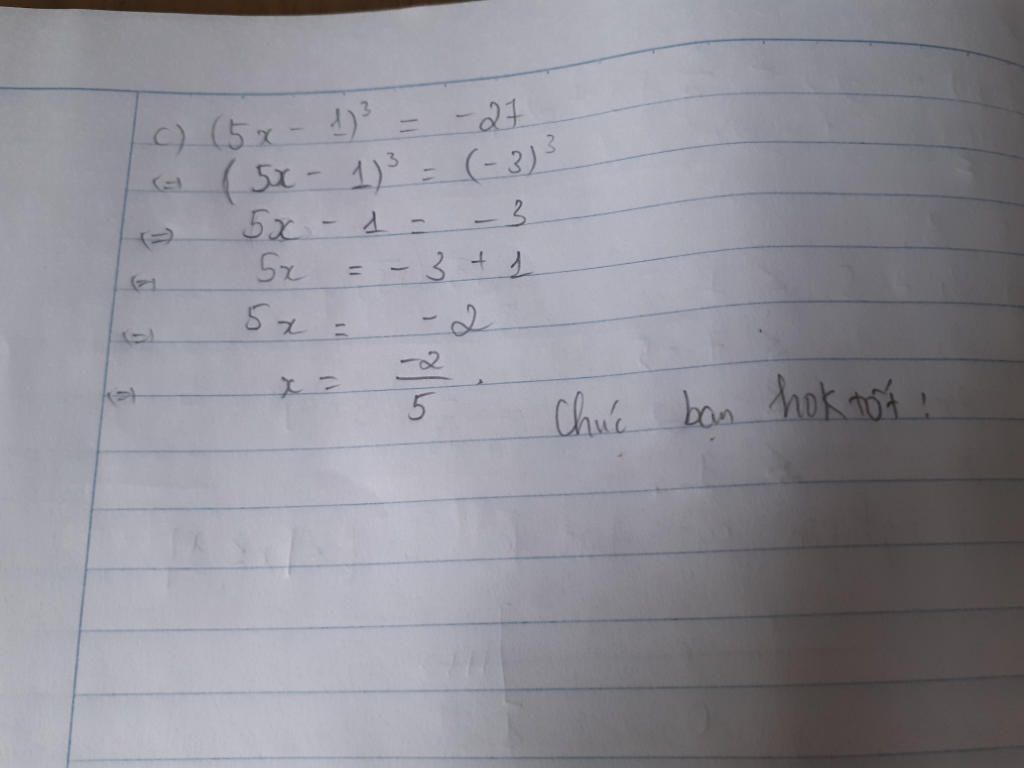 c) (5x - 1)³ = -27
(=) (5x - 1)³ = (-3)³
(=) 5x - 1 = -3
(=) 5x = -3 + 1
(=) 5x = -2
(=) x = -2/5.
Chúc bạn hok tốt !